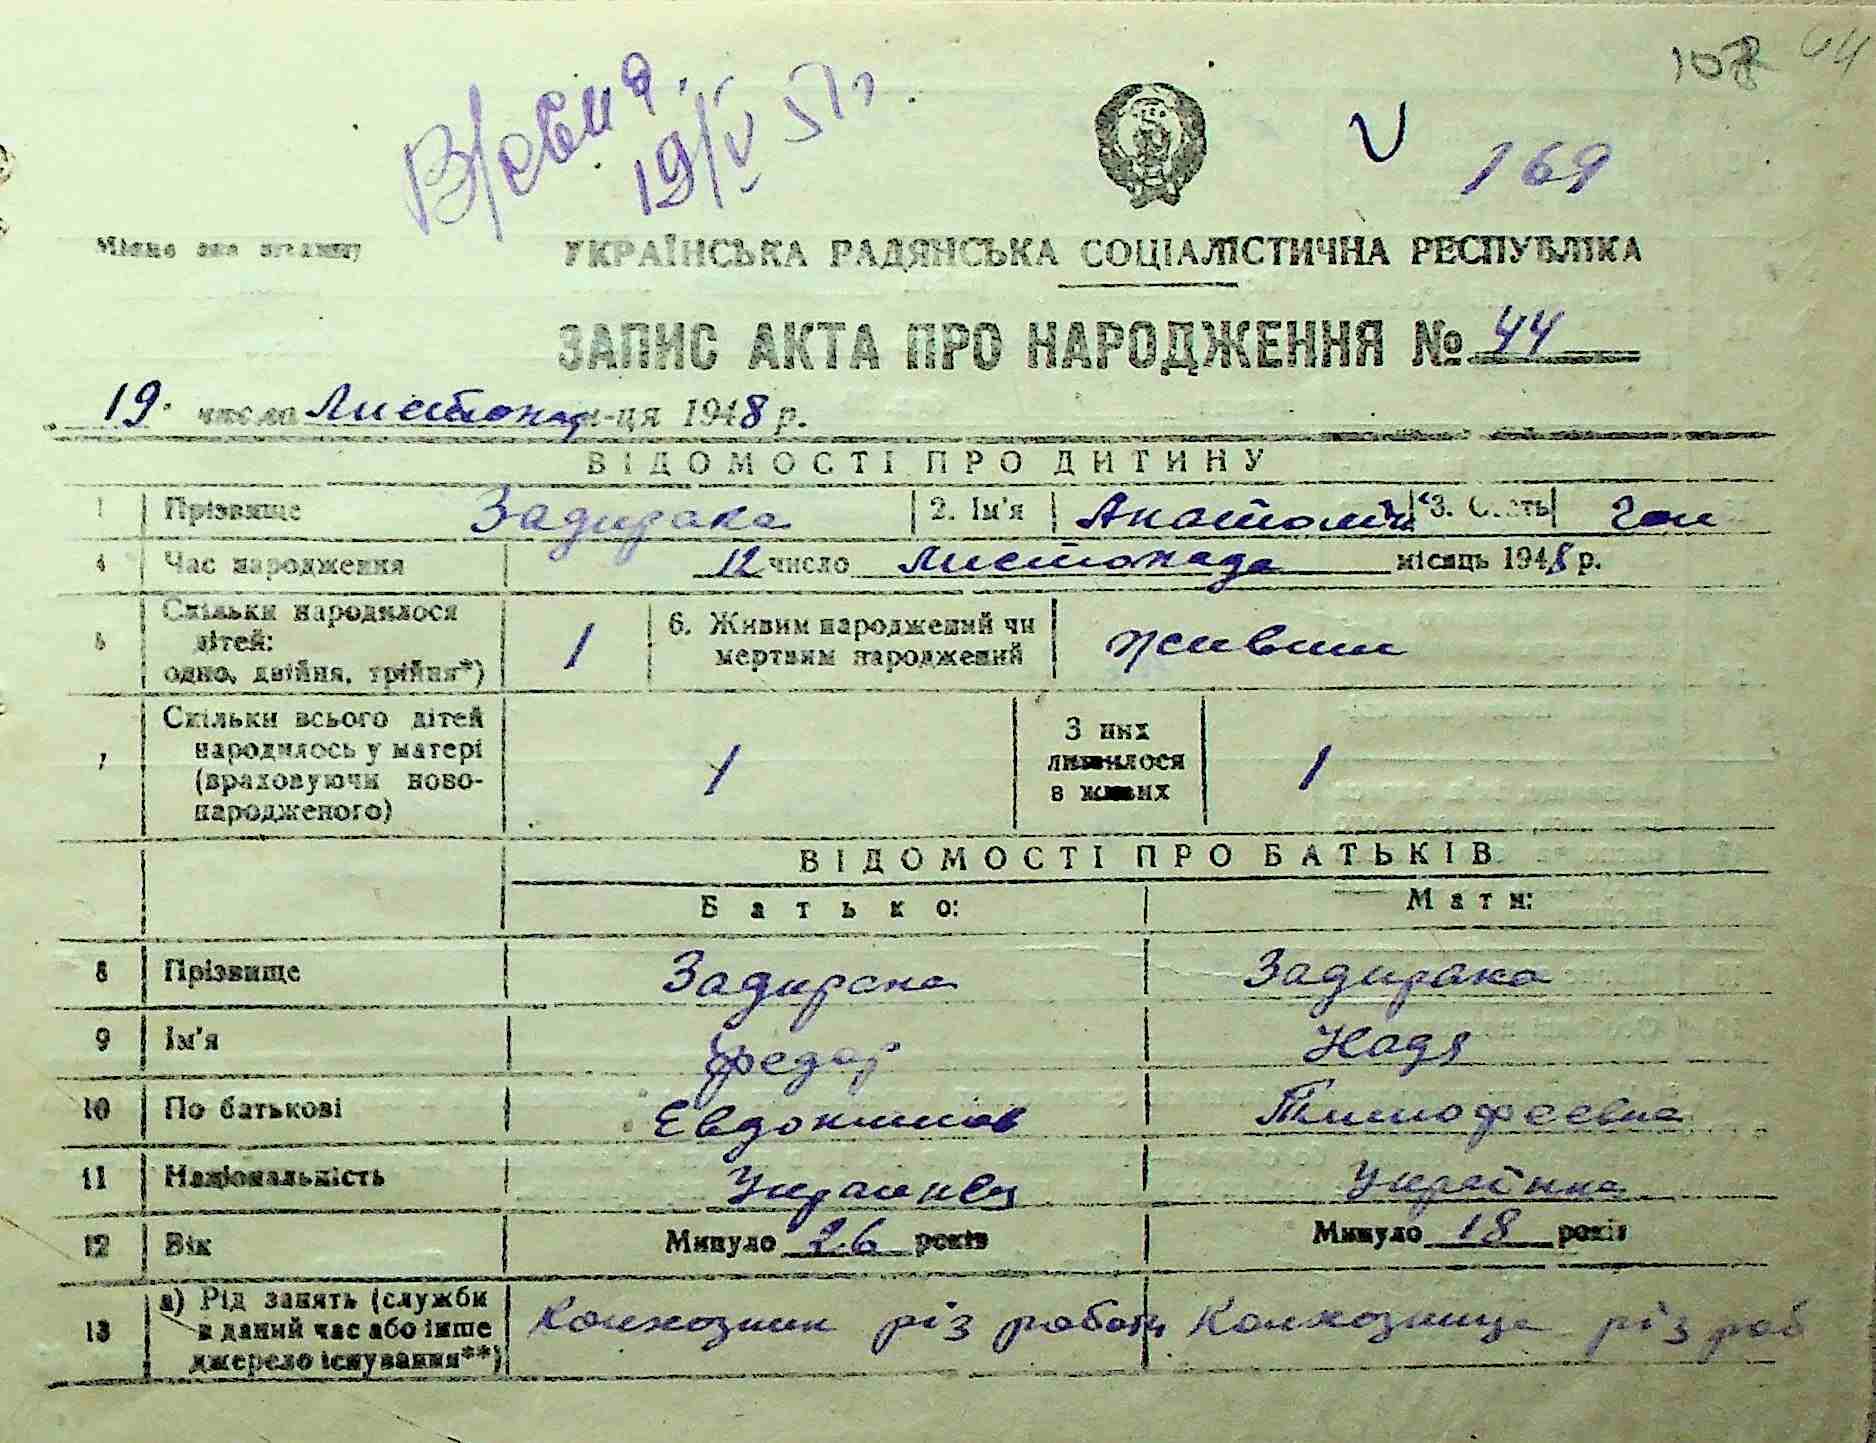 108 64
В/свид.
19/V 51 г.
169
Місце для штампу
УКРАЇНСЬКА РАДЯНСЬКА СОЦІАЛІСТИЧНА РЕСПУБЛІКА
ЗАПИС АКТА ПРО НАРОДЖЕННЯ № 44
19. число Листопад м-ця 1948 р.
ВІДОМОСТІ ПРО ДИТИНУ
1 Прізвище Задирака 2. Ім'я Анатолій 3. Стать чол
4 Час народження 12 число Листопада місяць 1948 р.
5 Скільки народилося дітей: одно, двійня, трійня*) 1 6. Живим народжений чи мертвим народжений живим
7 Скільки всього дітей народилось у матері (враховуючи новонародженого) 1 З них лишилося в живих 1
ВІДОМОСТІ ПРО БАТЬКІВ
Батько: Мати:
8 Прізвище Задирака Задирака
9 Ім'я Федор Надя
10 По батькові Евдокимов Тимофеевна
11 Національність Украинец Українка
12 Вік Минуло 26 років Минуло 18 років
13 а) Рід занять (служби в даний час або інше джерело існування**) Колхозник різ роботи Колхозница різ роб